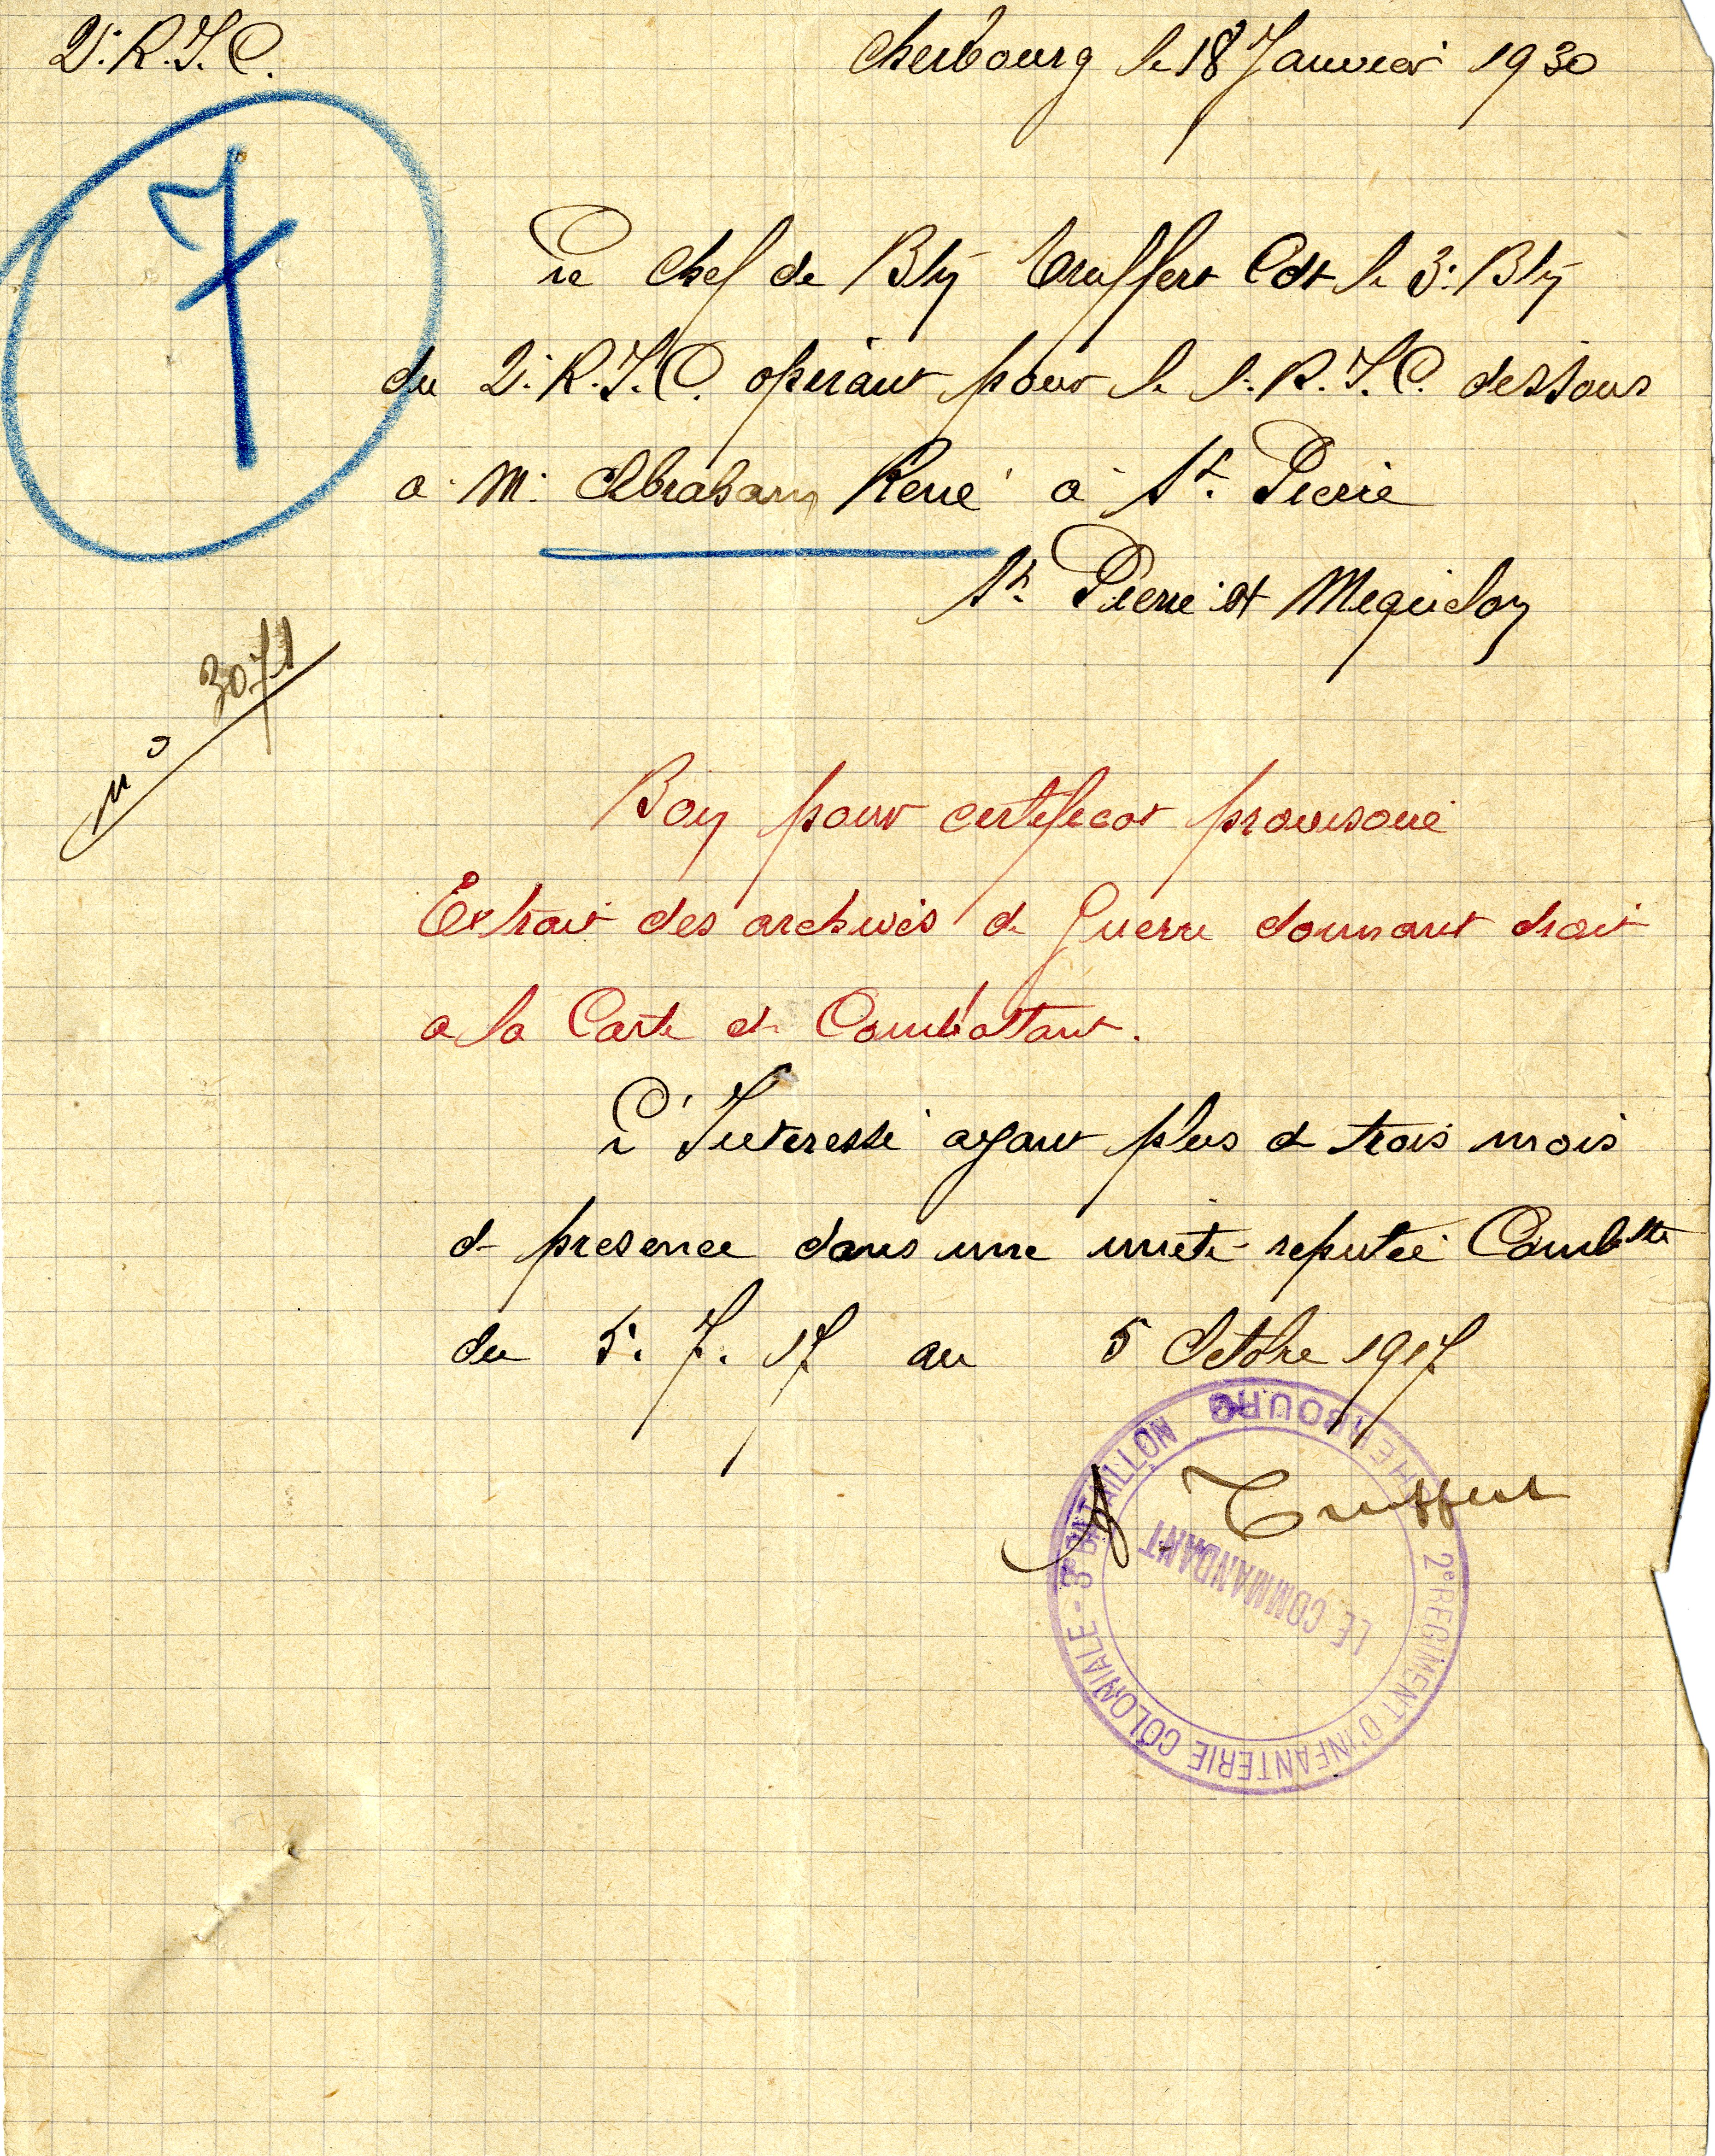 2e R.I.C.
Cherbourg le 18 Janvier 1930
7
Le Chef de Bon Truffert Cdt le 3e Bon
du 2e R.I.C. opérant pour le 1e R.I.C. dissous
a Mr Abraham René à St. Pierre
St. Pierre et Miquelon
No 3071
Bon pour certificat provisoire
Extrait des archives de Guerre donnant droit
a la Carte de Combattant.
L'Interessé ayant plus de trois mois
de presence dans une unité reputée Combtte
du 5. 7. 17 au 5 Octobre 1917
A. Truffert
2e REGIMENT D'INFANTERIE COLONIALE - 3e BATAILLON
CHERBOURG
LE COMMANDANT